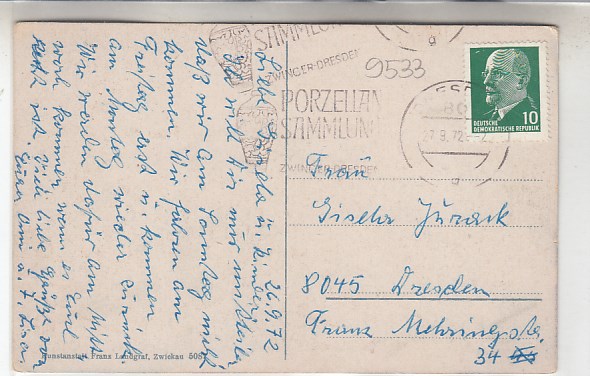 26.9.72
Liebe Gisela u.
Ich will Dir nur mitteilen
daß wir am Sonntag nicht
kommen. Wir fahren am
Freitag erst u. kommen
am Montag wieder zurück.
Wir werden dafür am Mitt
woch kommen wenn es Euch
recht ist. Viele liebe Grüße von
Kunstanstalt Franz Landgraf, Zwickau 508
SAMMLUN
ZWINGER-DRESDEN
PORZELLAN
SAMMLUNG
ZWINGER-DRESDEN
9533
DRESDEN
72
10
DEUTSCHE
DEMOKRATISCHE REPUBLIK
Frau
Gisela
8045 Dresden
Franz Mehringstr.
34